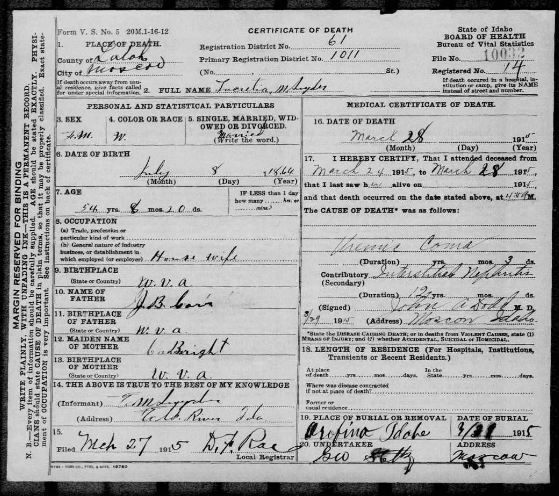 Form V. S. No. 5 20M.1-16-12
CERTIFICATE OF DEATH
State of Idaho
BOARD OF HEALTH
Bureau of Vital Statistics
1. PLACE OF DEATH.
County of Latah
City of Moscow
Registration District No. 61
Primary Registration District No. 1011
File No. 10032
Registered No. 14
(No.
If death occurs away from usual residence, give facts called for under special information.
If death occurred in a hospital, institution or camp, give its NAME instead of street and number.
2. FULL NAME Lucretia M Snyder
PERSONAL AND STATISTICAL PARTICULARS
3. SEX
4. COLOR OR RACE
W.
5. SINGLE, MARRIED, WIDOWED OR DIVORCED.
Married
(Write the word.)
6. DATE OF BIRTH
July 8 1864
(Month) (Day) (Year)
7. AGE
yrs. 8 mos. 20 ds.
IF LESS than 1 day
how many hrs.
or min?
8. OCCUPATION
(a) Trade, profession or particular kind of work
(b) General nature of industry, business, or establishment in which employed (or employer) House wife
9. BIRTHPLACE
(State or Country) W. V. a
10. NAME OF FATHER J B
11. BIRTHPLACE OF FATHER
(State or Country) W. V. a
12. MAIDEN NAME OF MOTHER Bright
13. BIRTHPLACE OF MOTHER
(State or Country) W. V. a
14. THE ABOVE IS TRUE TO THE BEST OF MY KNOWLEDGE
(Informant)
(Address) River Ida
15.
Filed Mch 27 1915
Local Registrar
MEDICAL CERTIFICATE OF DEATH
16. DATE OF DEATH
March 28 1915
(Month) (Day) (Year)
17. I HEREBY CERTIFY, That I attended deceased from
March 24 1915 to March 28 1915
that I last saw h alive on 191
and that death occurred on the date stated above, at M.
The CAUSE OF DEATH* was as follows:
Uremic Coma
(Duration) yrs. mos. 3 ds.
Contributory Interstitial Nephritis
(Secondary)
(Duration) yrs. mos. ds.
(Signed) M. D.
3/29 191 (Address) Moscow Idaho
*State the DISEASE CAUSING DEATH, or in deaths from VIOLENT CAUSES, state (1) MEANS OF INJURY; and (2) whether ACCIDENTAL, SUICIDAL or HOMICIDAL.
18. LENGTH OF RESIDENCE (For Hospitals, Institutions, Transients or Recent Residents.)
At place of death yrs. mos. days. In the State yrs. mos. days
Where was disease contracted if not at place of death?
Former or usual residence
19. PLACE OF BURIAL OR REMOVAL
Orofino Idaho
DATE OF BURIAL
1915
20. UNDERTAKER
Geo
ADDRESS
Moscow
MARGIN RESERVED FOR BINDING
WRITE PLAINLY, WITH UNFADING INK—THIS IS A PERMANENT RECORD.
N. B.—Every item of information should be carefully supplied. AGE should be stated EXACTLY. PHYSICIANS should state CAUSE OF DEATH in plain terms, so that it may be properly classified. Exact statement of OCCUPATION is very important. See instructions on back of certificate.